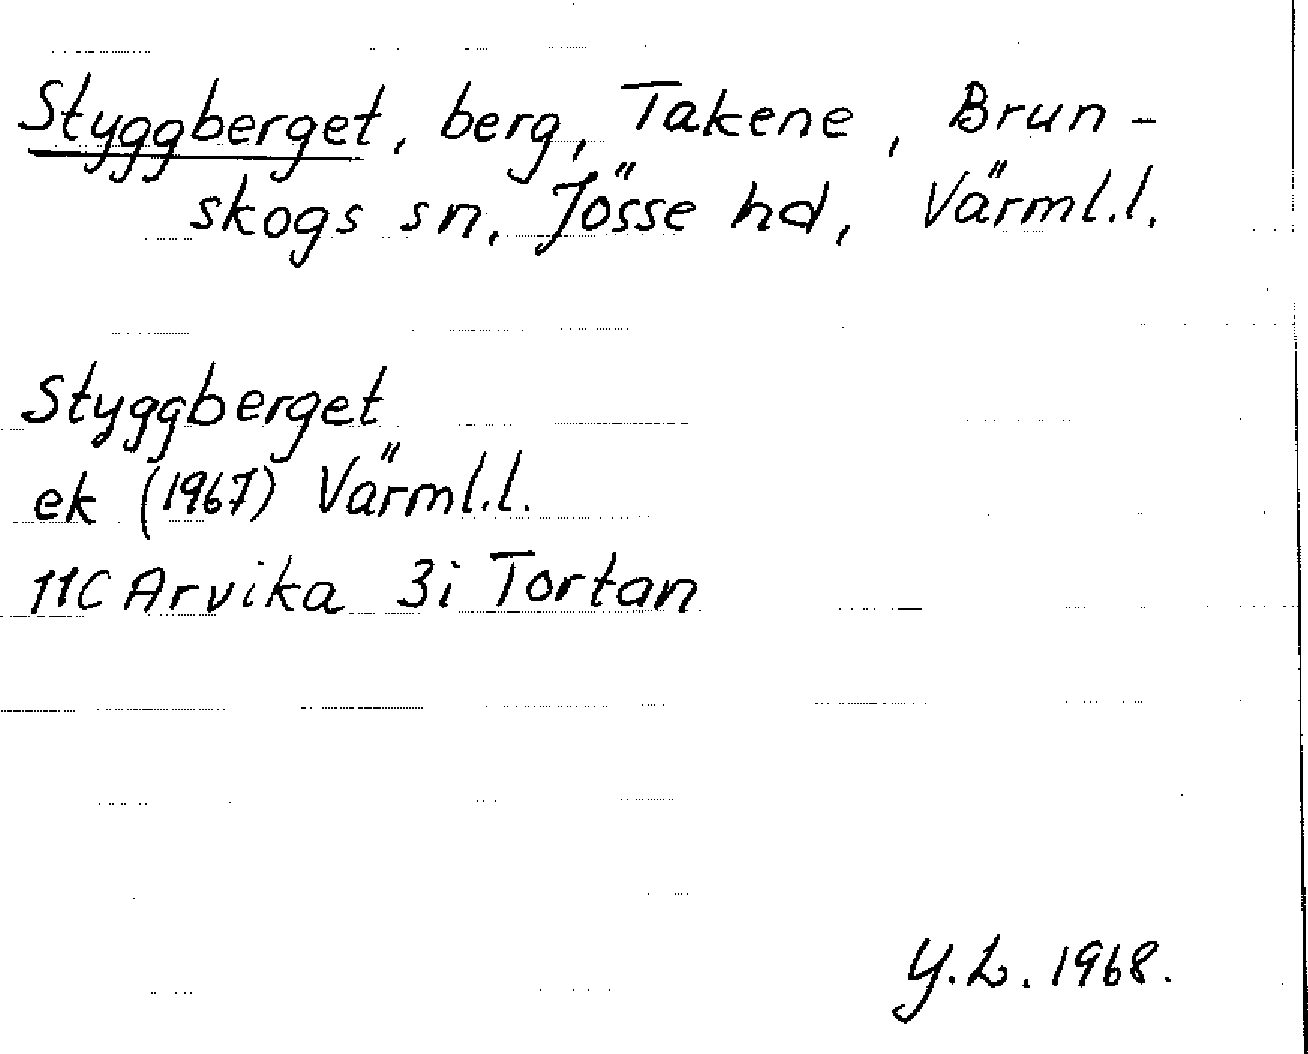 Styggberget, berg, Takene, Brun-
skogs sn, Jösse hd, Värml.l.
Styggberget
ek (1967) Värml.l.
11C Arvika 3i Tortan
Y.L. 1968.